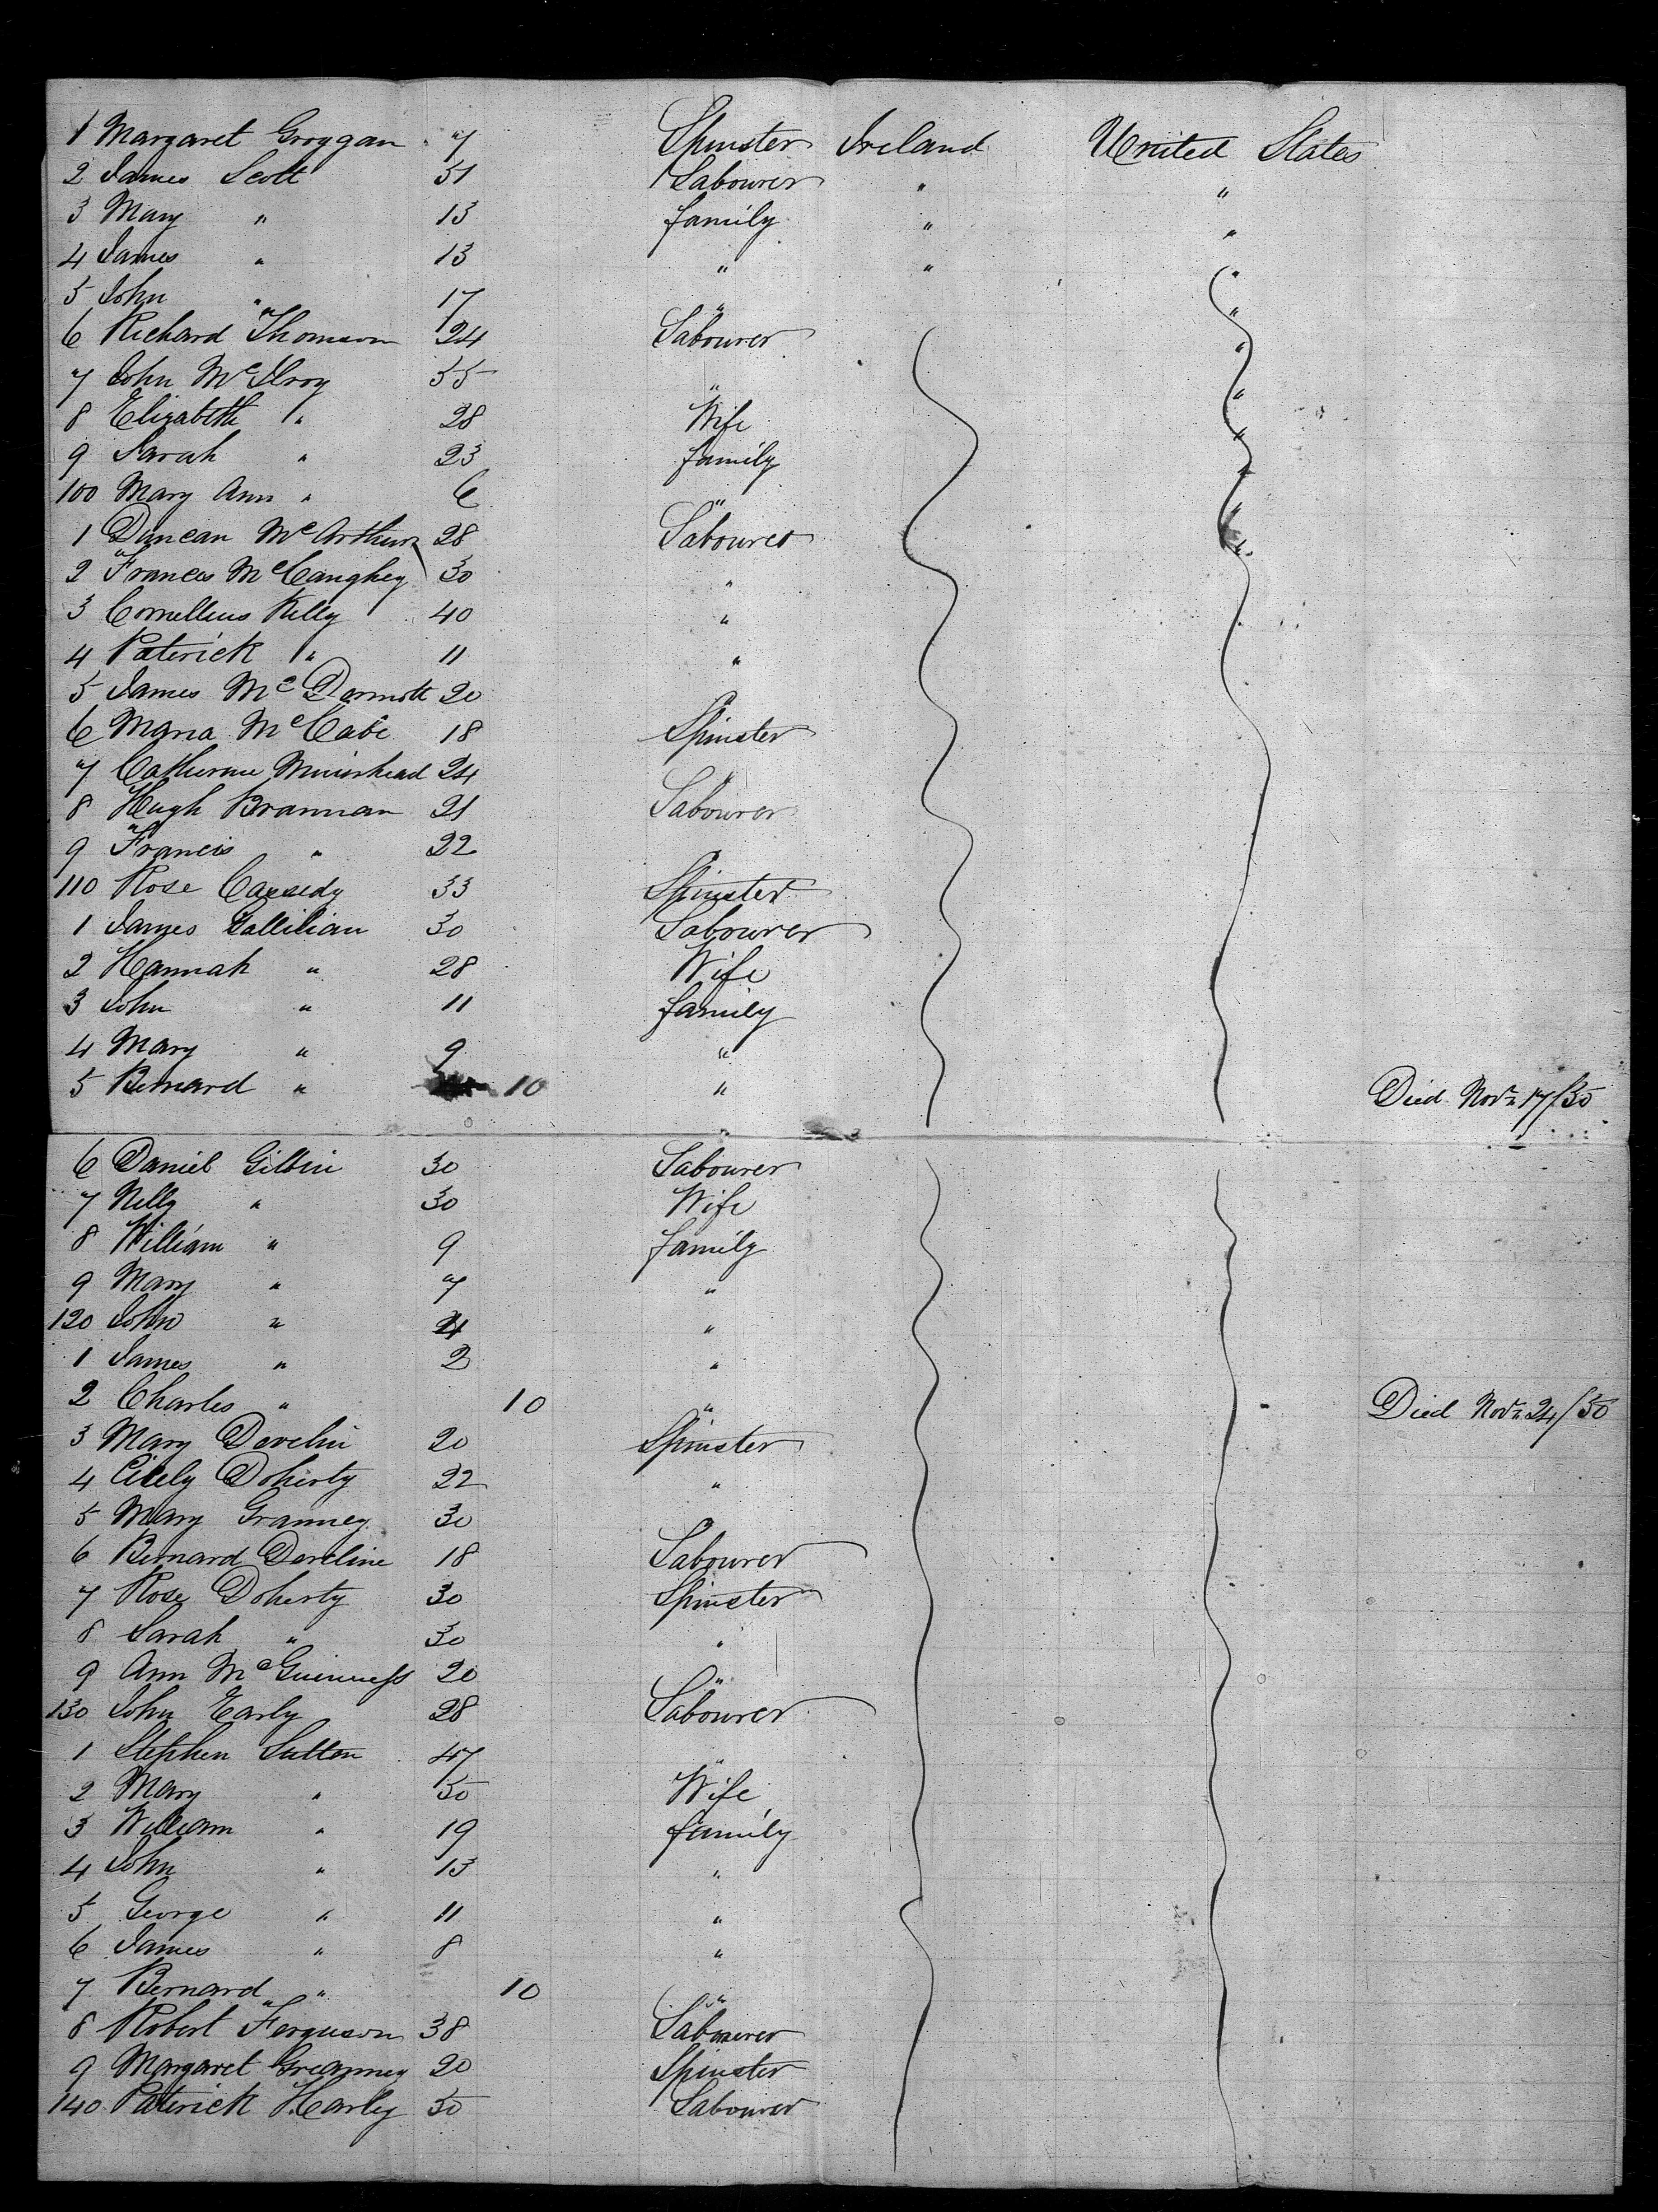 1 Margaret Groggan 7 Spinster Ireland United States
2 James Scott 51 Labourer " "
3 Mary " 13 family " "
4 James " 13 " " "
5 John " 17 " "
6 Richard Thomson 24 Labourer "
7 John McIlroy 35 " "
8 Elizabeth " 28 Wife "
9 Sarah " 23 family "
100 Mary Ann " 6 " "
1 Duncan McArthur 28 Labourer "
2 Frances McCaughey 30 "
3 Cornellius Kelly 40 "
4 Paterick " 11 "
5 James McDermott 20 "
6 Maria McCabe 18 Spinster
7 Catherine Muirhead 24 "
8 Hugh Brannan 21 Labourer
9 Francis " 22 "
110 Rose Cassedy 33 Spinster
1 James Gallilian 30 Labourer
2 Hannah " 28 Wife
3 John " 11 family
4 Mary " 9 "
5 Bernard " 10 " Died Novr 17/50
6 Daniel Gilbin 30 Labourer
7 Nelly " 30 Wife
8 William " 9 family
9 Mary " 7 "
120 John " 4 "
1 James " 2 "
2 Charles " 10 " Died Novr 24/50
3 Mary Develin 20 Spinster
4 Cicely Doherty 22 "
5 Mary Granney 30 "
6 Bernard Develine 18 Labourer
7 Rose Doherty 30 Spinster
8 Sarah " 30 "
9 Ann McGuinness 20 "
130 John Early 28 Labourer
1 Stephen Sutton 47 "
2 Mary " 50 Wife
3 William " 19 family
4 John " 13 "
5 George " 11 "
6 James " 8 "
7 Bernard " 10 "
8 Robert Ferguson 38 Labourer
9 Margaret Greanney 20 Spinster
140 Paterick Harley 50 Labourer